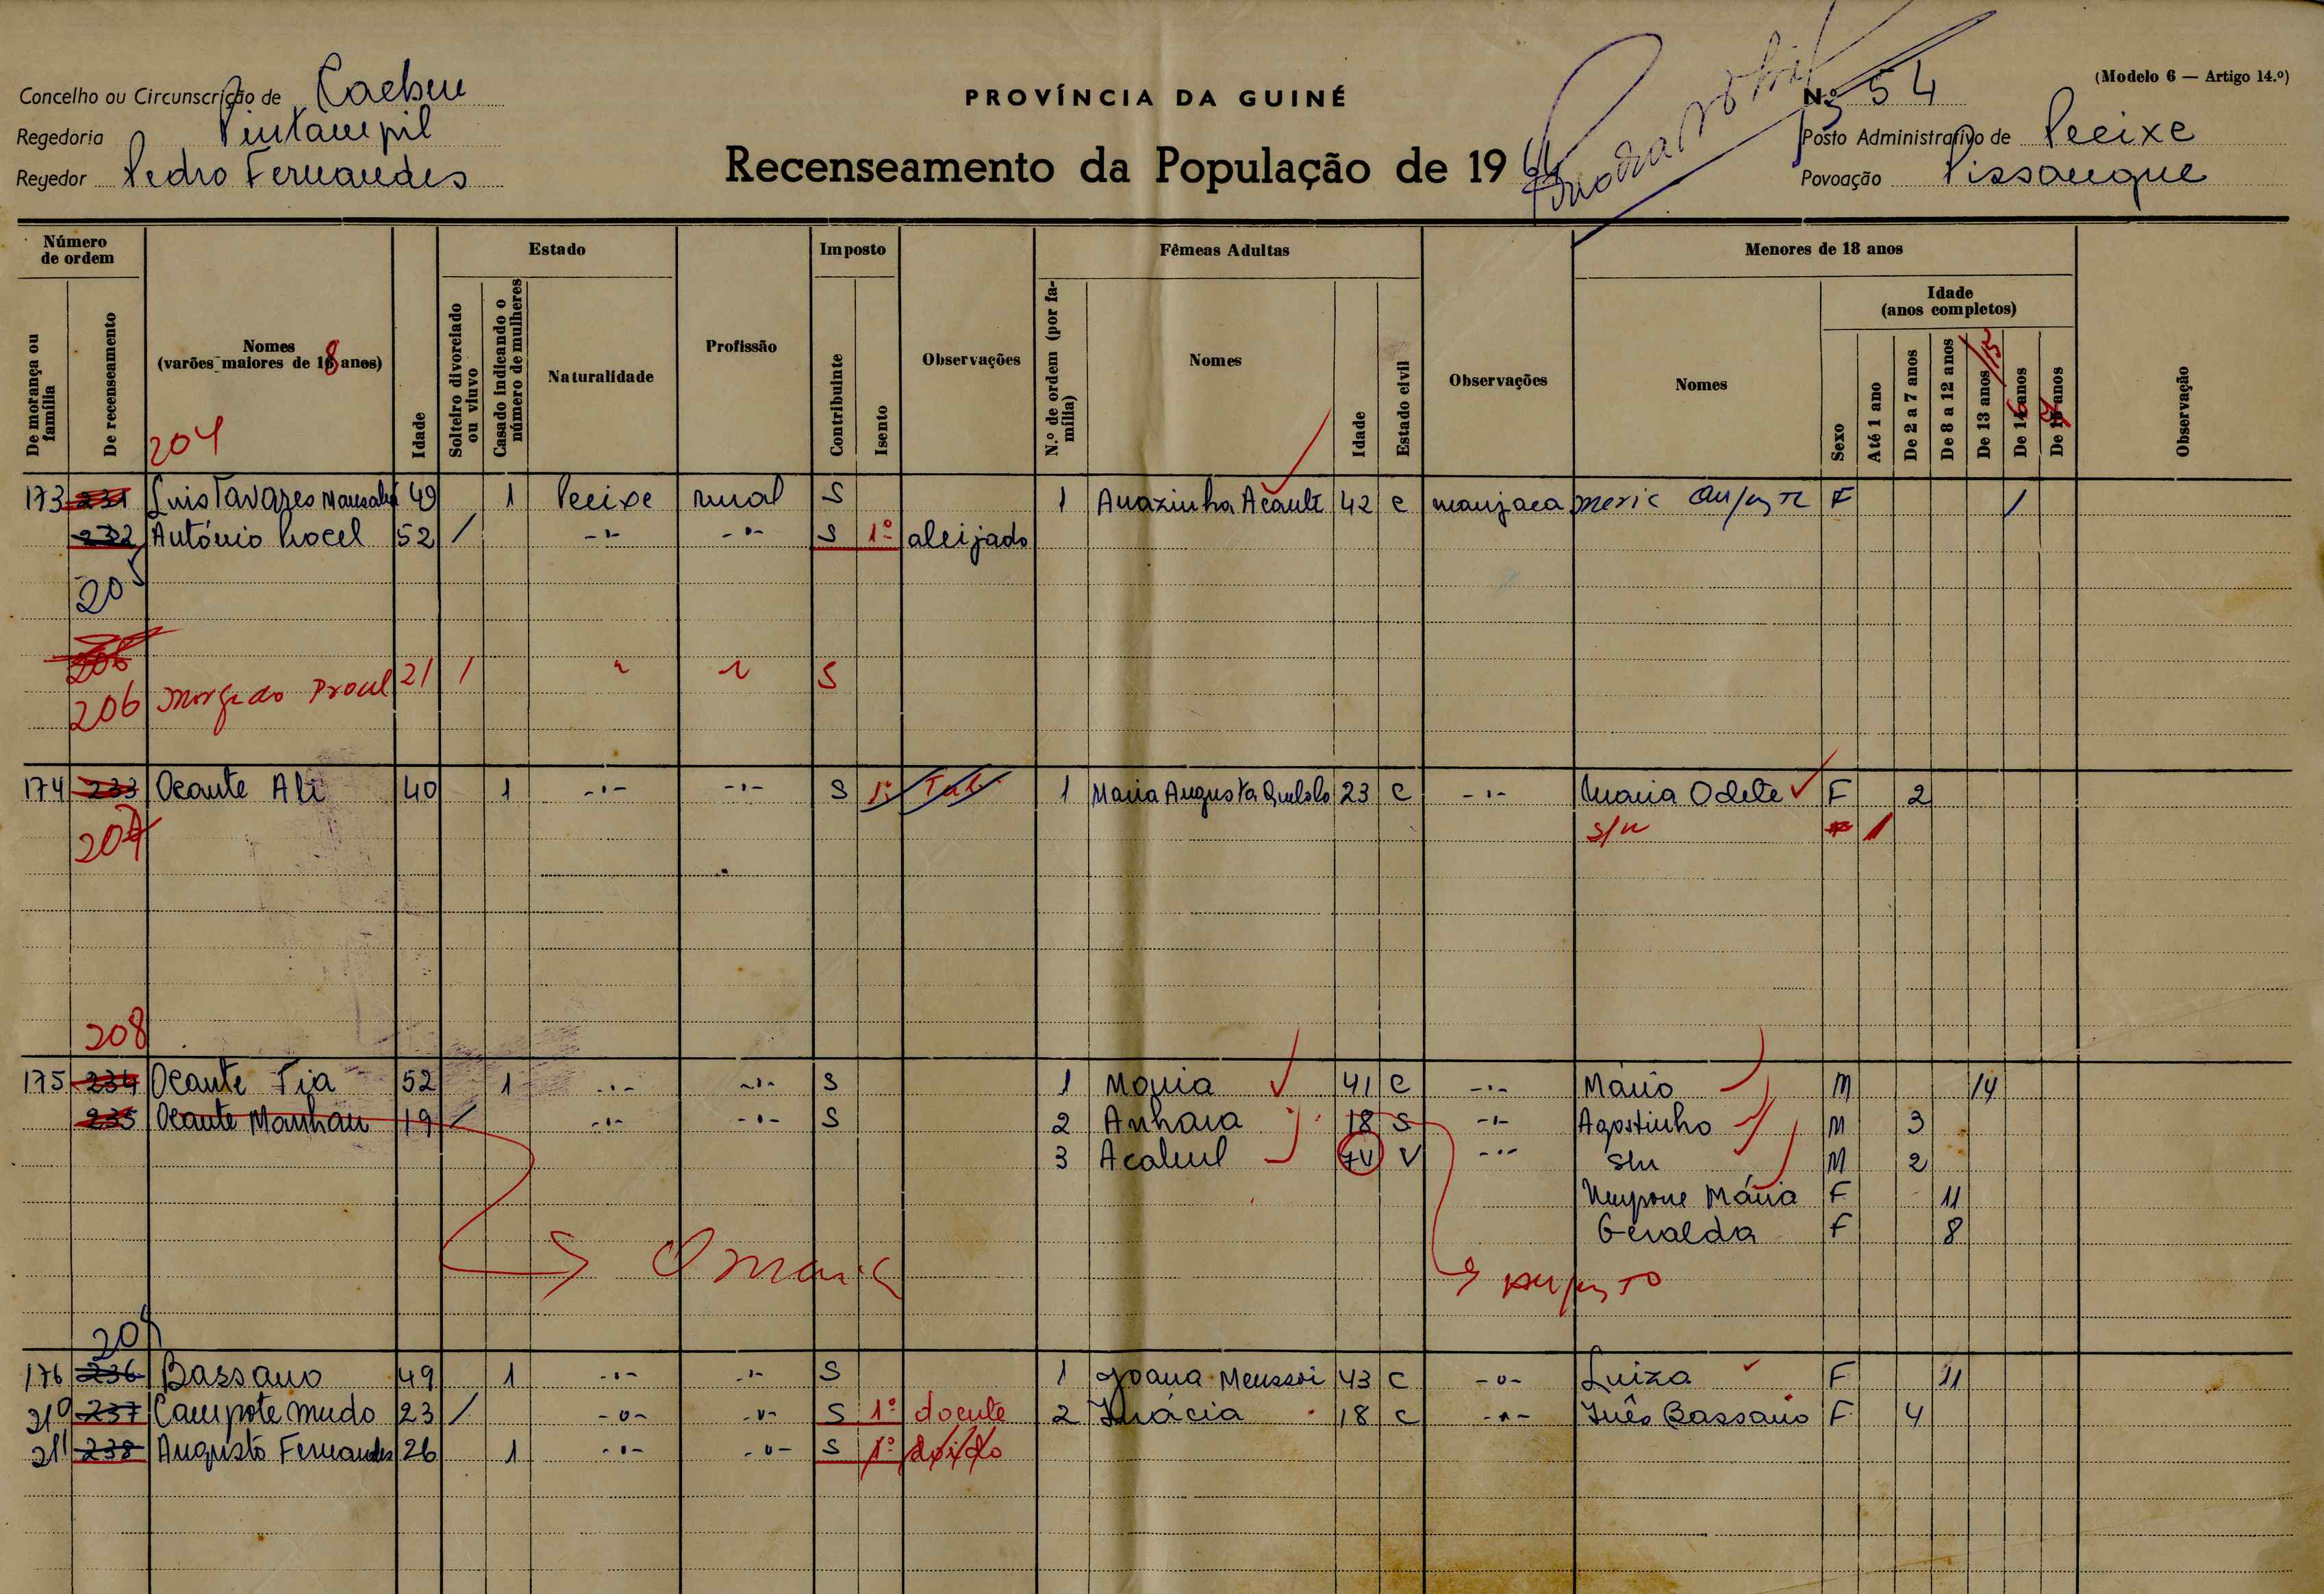 Concelho ou Circunscrição de Caeheu
PROVÍNCIA DA GUINÉ
N.º 54
(Modelo 6 — Artigo 14.º)
Regedoria Pintampil
Posto Administrativo de Pecixe
Regedor Pedro Fernandes
Recenseamento da População de 19
Povoação Pissangue
Número de ordem
Estado
Imposto
Fêmeas Adultas
Menores de 18 anos
De morança ou família
De recenseamento
Nomes (varões maiores de 18 anos)
Idade
Solteiro divorciado ou viuvo
Casado indicando o número de mulheres
Naturalidade
Profissão
Contribuinte
Isento
Observações
N.º de ordem (por família)
Nomes
Idade
Estado civil
Observações
Nomes
Idade (anos completos)
Sexo
Até 1 ano
De 2 a 7 anos
De 8 a 12 anos
De 13 anos /15
De 16 anos
De 17 anos
Observação
204
173 231 Luis Tavares 49 1 Pecixe rural S 1 Anazinha Acante 42 C manjaca F /
232 António 52 / -"- -"- S 1º aleijado
205
206
206 Morgado 21 / " " S
174 233 Ocante Ali 40 1 -"- -"- S 1º 1 Maria Augusta 23 C -"- Maria Odete F 2
207 s/n F 1
208
175 234 Ocante Tia 52 1 -"- -"- S 1 Maria 41 C -"- Mário M 14
235 Ocante Manhau 19 / -"- -"- S 2 Anhara 18 S -"- Agostinho M 3
3 Acaleul V -"- s/n M 2
Mária F 11
Geralda F 8
209
176 236 Bassano 49 1 -"- -"- S 1 Joana 43 C -"- Luiza F 11
210 237 Campote Mudo 23 / -"- -"- S 1º doente 2 Inácia 18 C -"- Inês Bassano F 4
211 238 Augusto Fernandes 26 1 -"- -"- S 1º doido